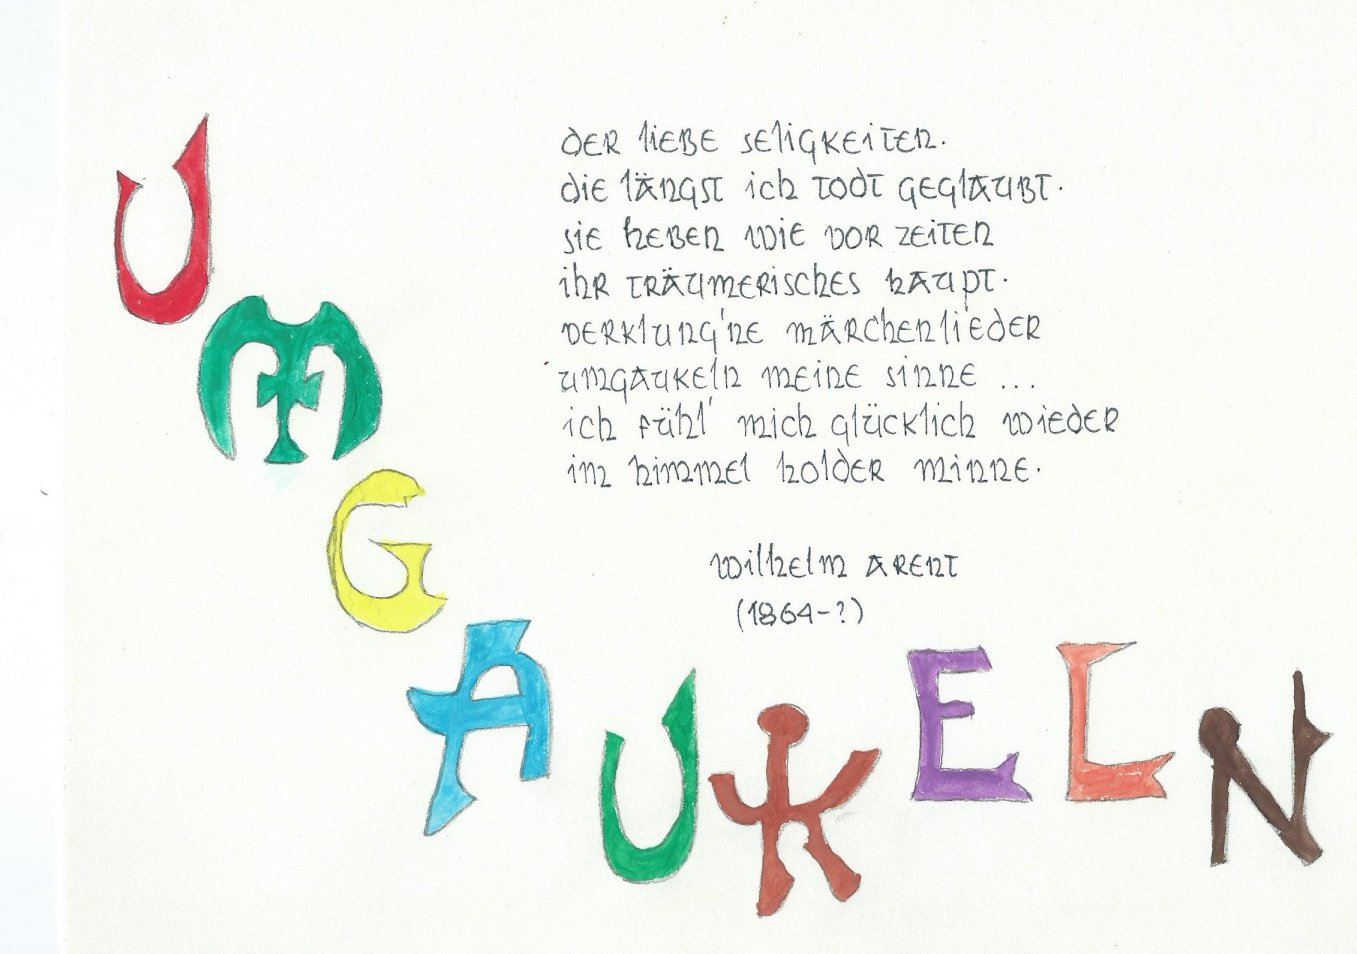 der liebe seligkeiten.
die längst ich todt geglaubt.
sie heben wie vor zeiten
ihr träumerisches haupt.
verklung'ne märchenlieder
umgaukeln meine sinne ...
ich fühl' mich glücklich wieder
im himmel holder minne.
wilhelm arent
(1864-?)
UMGAUKELN